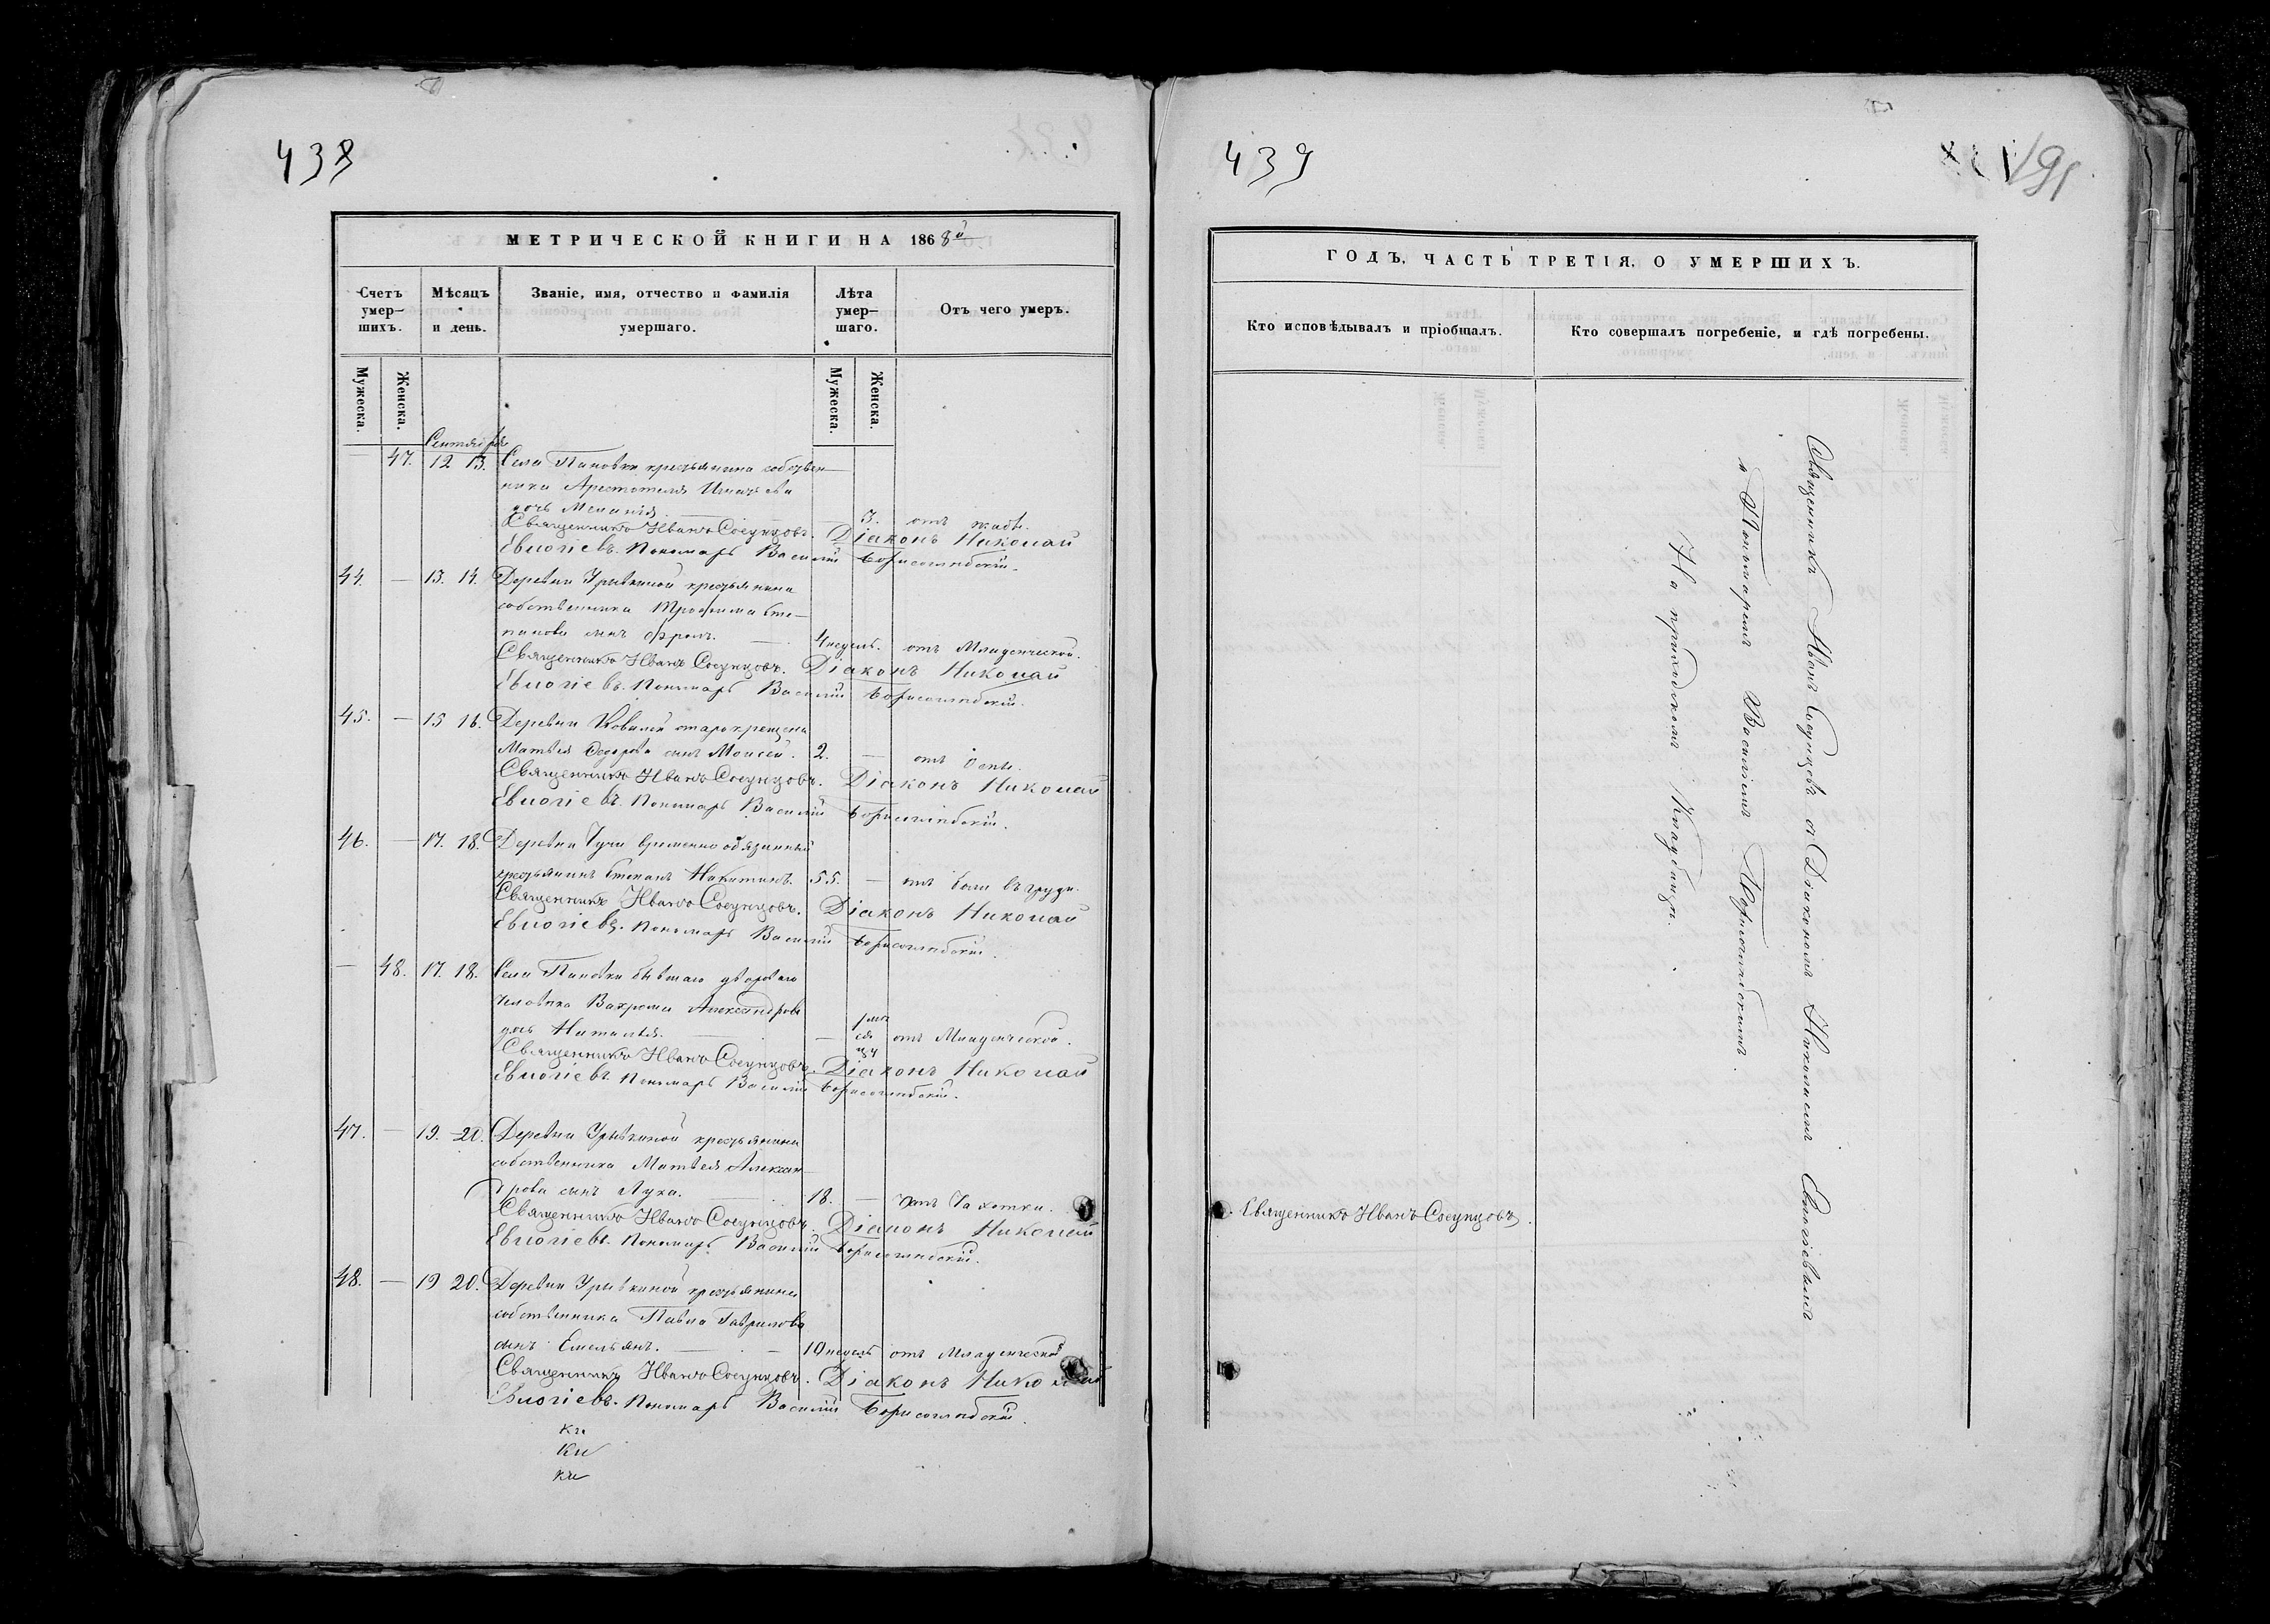 438
МЕТРИЧЕСКОЙ КНИГИ НА 1868й
Счетъ умер-шихъ.
Мѣсяцъ и день.
Званіе, имя, отчество и фамилія умершаго.
Лѣта умер-шаго.
Отъ чего умеръ.
Мужеска.
Женска.
Мужеска.
Женска.
Сентября
— 47. 12 13. Села Пановки крестьянина собствен-
ника Аристотеля Игнатьева
дочь Меланія. — 3. отъ жабы.
Священникъ Иванъ Сосунцовъ. Діаконъ Николай
Евлогіевъ. Пономарь Василій Борисоглѣбскій.
44. — 13. 14. Деревни Урывкиной крестьянина
собственника Трофима Сте-
панова сынъ Фролъ. — 4 недѣль. отъ Младенческой.
Священникъ Иванъ Сосунцовъ. Діаконъ Николай
Евлогіевъ. Пономарь Василій Борисоглѣбскій.
45. — 15 16. Деревни старокрещена
Матвѣя Федорова сынъ Моисей. 2. — отъ Оспы.
Священникъ Иванъ Сосунцовъ. Діаконъ Николай
Евлогіевъ. Пономарь Василій Борисоглѣбскій.
46. — 17. 18. Деревни временно обязанный
крестьянинъ Степанъ Никитинъ. 55. — отъ боли въ груди.
Священникъ Иванъ Сосунцовъ. Діаконъ Николай
Евлогіевъ. Пономарь Василій Борисоглѣбскій.
— 48. 17. 18. Села Пановки бывшаго двороваго
человѣка Александрова
дочь Наталія. — 1 мѣсяцу отъ Младенческой.
Священникъ Иванъ Сосунцовъ. Діаконъ Николай
Евлогіевъ. Пономарь Василій Борисоглѣбскій.
47. — 19. 20. Деревни Урывкиной крестьянина
собственника Матвѣя Алексан-
дрова сынъ Лука. — 18. — отъ Чахотки.
Священникъ Иванъ Сосунцовъ. Діаконъ Николай
Евлогіевъ. Пономарь Василій Борисоглѣбскій.
48. — 19 20. Деревни Урывкиной крестьянина
собственника Павла Гаврилова
сынъ Емельянъ. — 10 недѣль отъ Младенческой
Священникъ Иванъ Сосунцовъ. Діаконъ Николай
Евлогіевъ. Пономарь Василій Борисоглѣбскій.
439
191
ГОДЪ, ЧАСТЬ ТРЕТІЯ, О УМЕРШИХЪ.
Кто исповѣдывалъ и пріобщалъ.
Кто совершалъ погребеніе, и гдѣ погребены.
Священникъ Иванъ Сосунцовъ.
Священникъ Иванъ Сосунцовъ съ Діакономъ Николаемъ Евлогіевымъ
и Пономаремъ Василіемъ Борисоглѣбскимъ.
На приходскомъ Кладбищѣ.